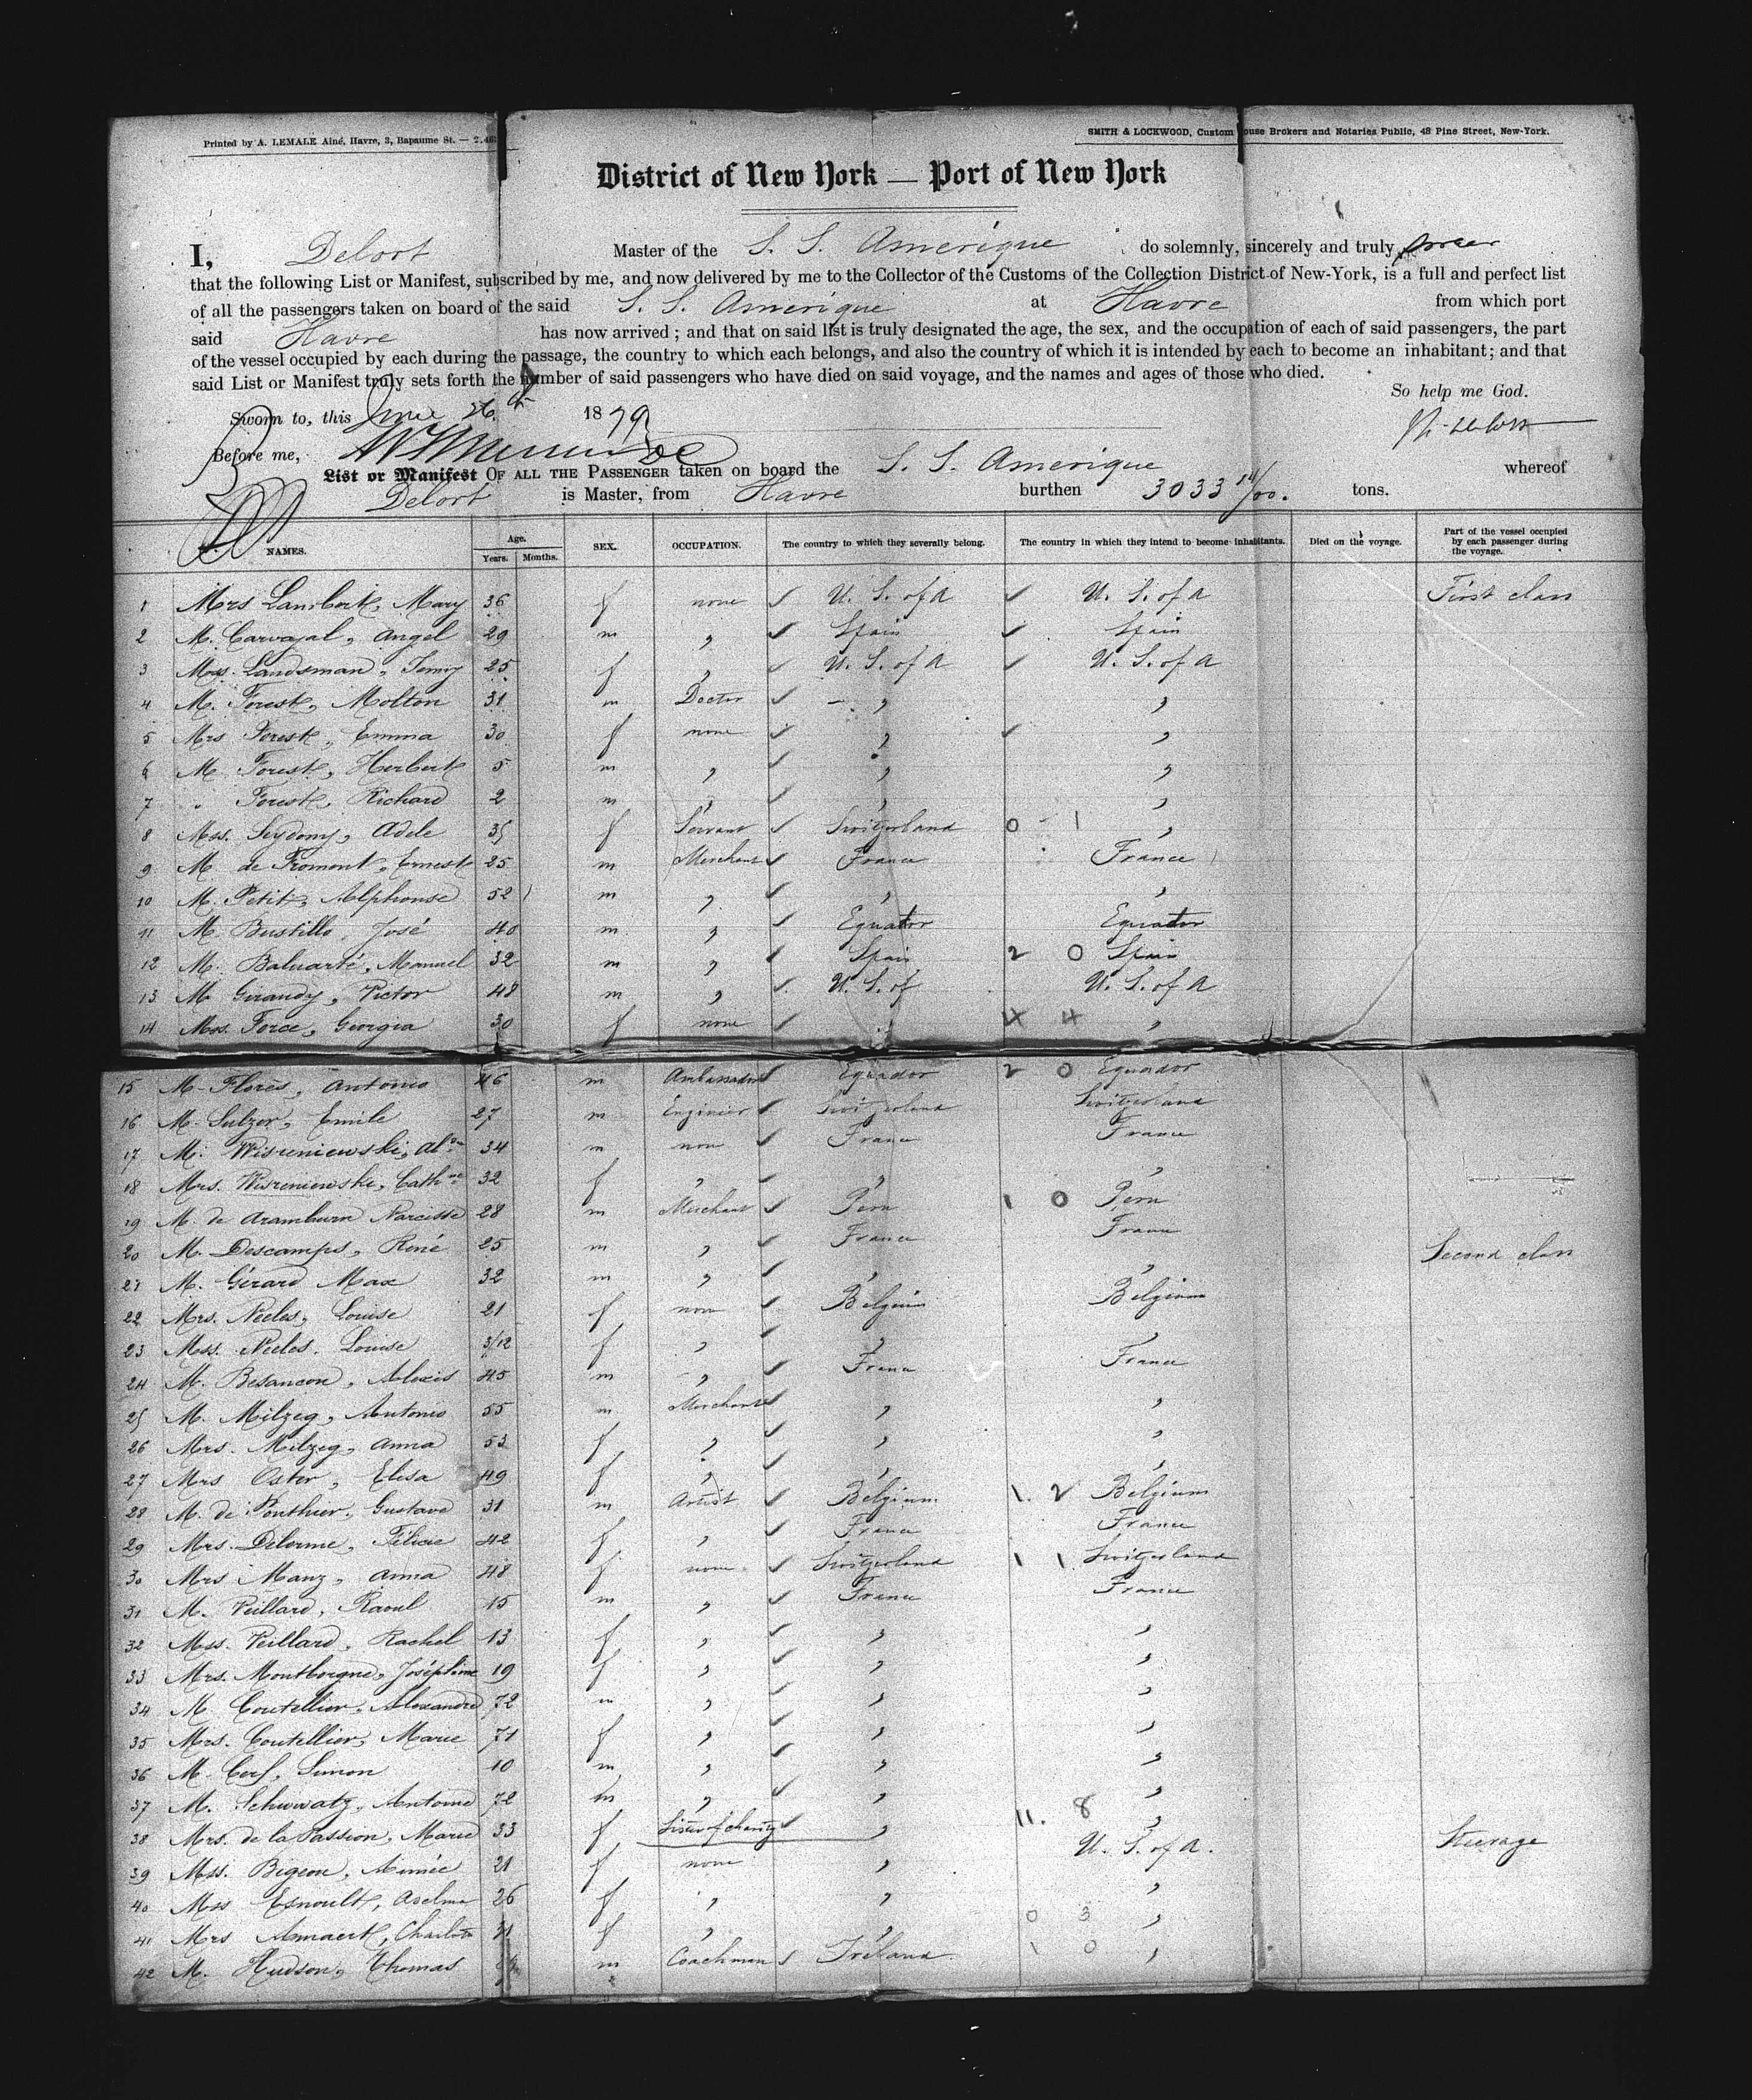 Printed by A. LEMALE Ainé, Havre, 3, Bapaume St. —
SMITH & LOCKWOOD, Custom House Brokers and Notaries Public, 48 Pine Street, New-York.
District of New York — Port of New York
I, Delort Master of the S. S. Amerique do solemnly, sincerely and truly swear
that the following List or Manifest, subscribed by me, and now delivered by me to the Collector of the Customs of the Collection District of New-York, is a full and perfect list
of all the passengers taken on board of the said S. S. Amerique at Havre from which port
said Havre has now arrived ; and that on said list is truly designated the age, the sex, and the occupation of each of said passengers, the part
of the vessel occupied by each during the passage, the country to which each belongs, and also the country of which it is intended by each to become an inhabitant; and that
said List or Manifest truly sets forth the number of said passengers who have died on said voyage, and the names and ages of those who died.
So help me God.
Sworn to, this June 26th 1879
Before me,
List or Manifest OF ALL THE PASSENGER taken on board the S. S. Amerique whereof
Delort is Master, from Havre burthen 3033 tons.
NAMES. Age. Years. Months. SEX. OCCUPATION. The country to which they severally belong. The country in which they intend to become inhabitants. Died on the voyage. Part of the vessel occupied by each passenger during the voyage.
1 Mrs Lambert, Mary 36 f none U. S. of A U. S. of A First class
2 M. Carvajal, Angel 29 m " Spain Spain
3 Mss. Landsman, Jenny 25 f " U. S. of A U. S. of A
4 M. Forest, Molton 31 m Doctor " "
5 Mrs Forest, Emma 30 f none " "
6 M Forest, Herbert 5 m " " "
7 " Forest, Richard 2 m " " "
8 Mss. Seydomy, Adele 35 f Servant Switzerland 0 1 "
9 M de Fromont, Erneste 25 m Merchant France France
10 M. Petit, Alphonse 52 m " " "
11 M. Bustillo, José 40 m " Equator Equator
12 M. Baluarté, Manuel 32 m " Spain 2 0 Spain
13 M Giraudy, Victor 48 m " U. S. of U. S. of A
14 Mss. Force, Georgia 30 f none " 4 "
15 M. Flores, Antonio 46 m Ambassador Equador 2 0 Equador
16 M. Sulzer, Emile 27 m Enginier Switzerland Switzerland
17 M. Wiszeniewski, 34 m none France France
18 Mrs. Wiszeniewski, Cathne 32 f " " "
19 M. de Aramburn Narcisse 28 m Merchant Peru 1 0 Peru
20 M. Descamps, René 25 m " France France Second class
21 M. Gérard Max 32 m " " "
22 Mrs. Neeles, Louise 21 f none Belgium Belgium
23 Mss. Neeles. Louise 3/12 f " " "
24 M. Besancon, Alexis 45 m " France France
25 M. Milzeg, Antonio 55 m Merchant " "
26 Mrs. Milzeg, Anna 53 f " " "
27 Mrs Oster, Elisa 49 f " " "
28 M. de Ponthier, Gustave 31 m Artist Belgium 1. 2 Belgium
29 Mrs. Delorme, Félicie 42 f " France France
30 Mrs Manz, Anna 48 f none Switzerland 1 1 Switzerland
31 M. Veillard, Raoul 15 m " France France
32 Mss. Veillard, Rachel 13 f " " "
33 Mrs. Montborgne, Joséphine 19 f " " "
34 M. Coutellier, Alexandre 72 m " " "
35 Mrs. Coutellier, Marie 71 f " " "
36 M. Cerf, Simon 10 m " " "
37 M. Schwwatz, Antoine 72 m " " "
38 Mrs. de la Passion, Marie 33 f Sister of charity " 11. 8 "
39 Mss. Bigeon, Aimée 21 f none " U. S. of A. Steerage
40 Mss Esnoult, Aselma 26 f " " "
41 Mrs Asmaert, Charlotte f " " 0 3 "
42 M. Hudson, Thomas m Coachman Ireland 1 0 "